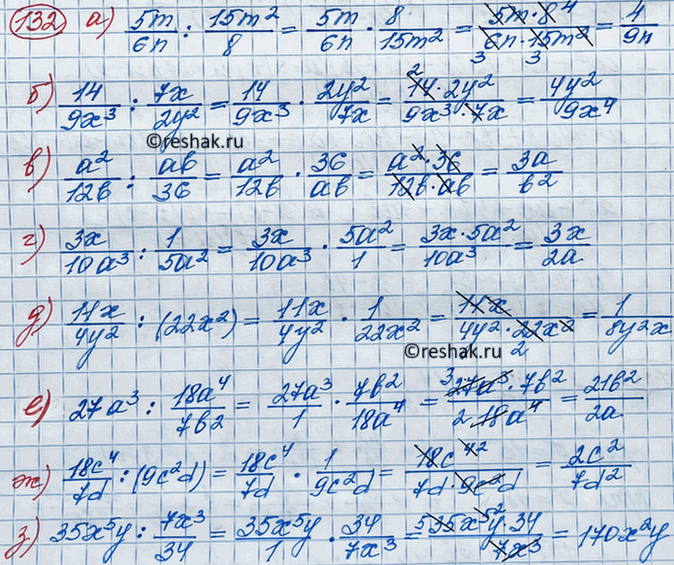 132 а) 5m/6n : 15m²/8 = 5m/6n · 8/15m² = 5m · 8 4/6n · 15m² 3 3 = 4/9n
б) 14/9x³ : 7x/2y² = 14/9x³ · 2y²/7x = 2 14 · 2y²/9x³ · 7x = 4y²/9x⁴
©reshak.ru
в) a²/12b : ab/36 = a²/12b · 36/ab = a² · 36/12b · ab = 3a/b2
г) 3x/10a³ : 1/5a² = 3x/10a³ · 5a²/1 = 3x · 5a²/10a³ = 3x/2a
д) 11x/4y² : (22x²) = 11x/4y² · 1/22x² = 11x/4y² · 22x² 2 = 1/8y²x
©reshak.ru
е) 27a³ : 18a⁴/7b2 = 27a³/1 · 7b²/18a⁴ = 3 27a³ · 7b²/2 18a⁴ = 21b²/2a
ж) 18c⁴/7d : (9c²d) = 18c⁴/7d · 1/9c²d = 18c⁴ ²/7d · 9c²d = 2c²/7d²
з) 35x⁵y : 7x³/34 = 35x⁵y/1 · 34/7x³ = 5 35x⁵ ²y · 34/7x³ = 170x²y